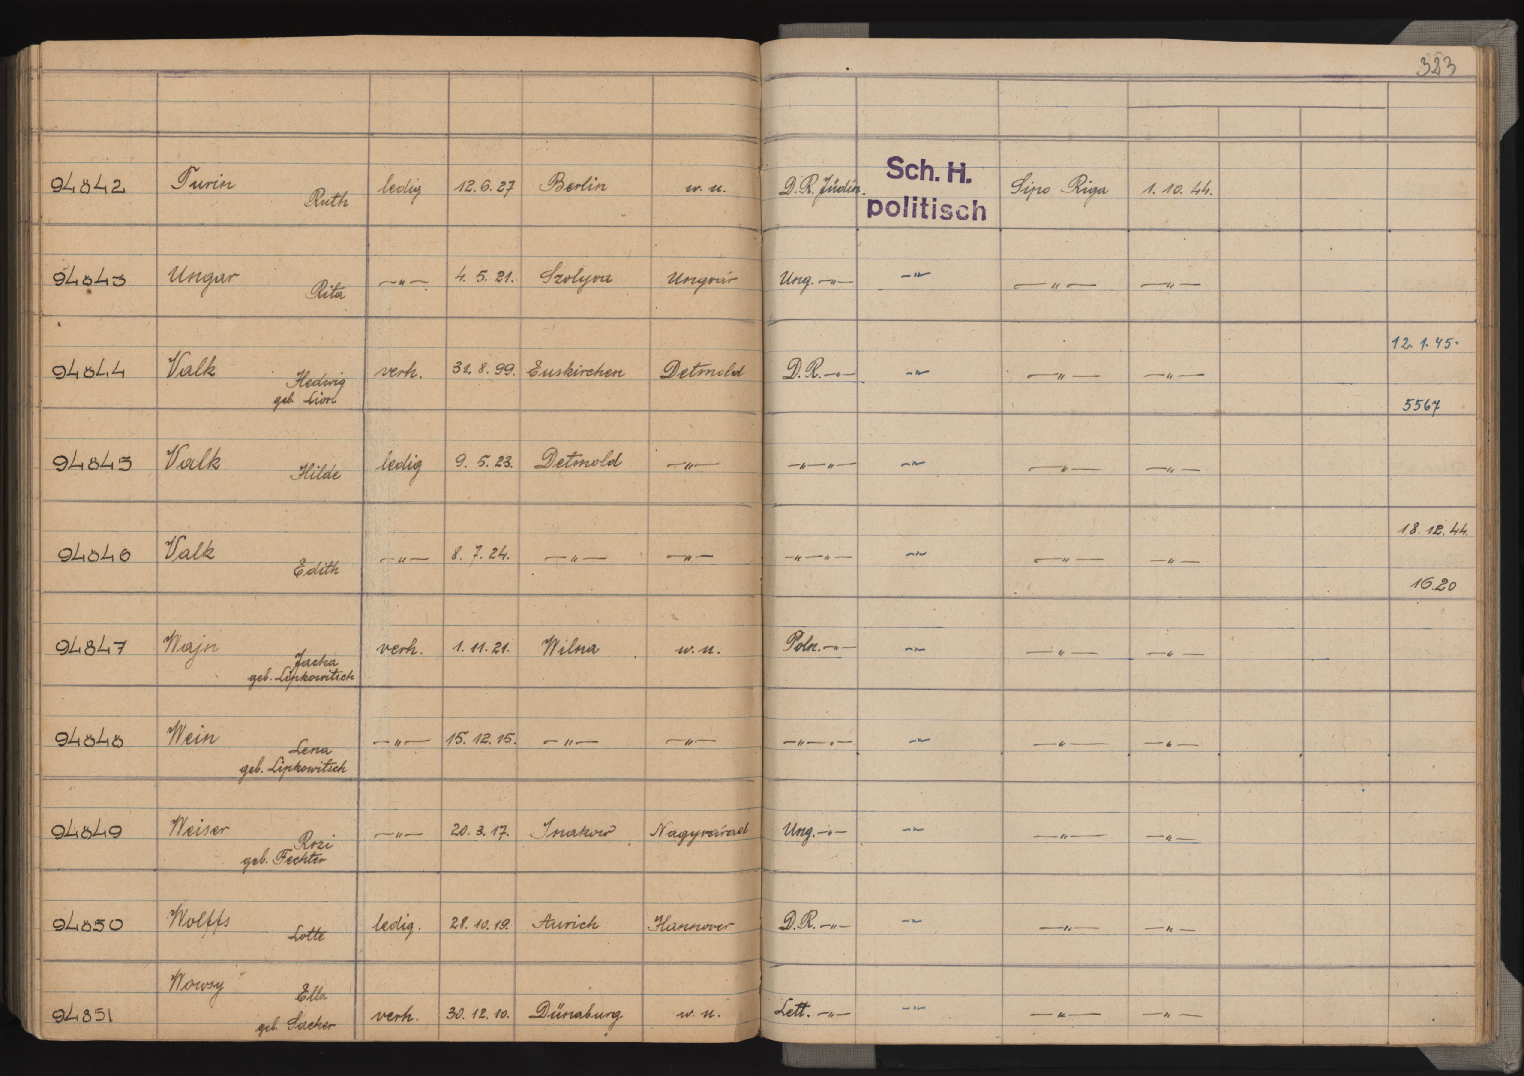 323
94842 Turin Ruth ledig 12.6.27 Berlin w. u. D.R. Jüdin. Sch. H. politisch Sipo Riga 1.10.44.
94843 Ungar Rita —"— 4.5.21. Szolyva Ungvár Ung. —"— —"— —"— —"—
94844 Valk Hedwig geb. Lion verh. 31.8.99. Euskirchen Detmold D.R. —"— —"— —"— —"— 12.1.45. 5567
94845 Valk Hilde ledig 9.5.23. Detmold —"— —"—"— —"— —"— —"—
94846 Valk Edith —"— 8.7.24. —"— —"— —"—"— —"— —"— —"— 18.12.44. 1620
94847 Wajn Jacha geb. Lipkowitsch verh. 1.11.21. Wilna w. u. Poln. —"— —"— —"— —"—
94848 Wein Lena geb. Lipkowitsch —"— 15.12.15. —"— —"— —"—"— —"— —"— —"—
94849 Weiser Rozi geb. Fechter —"— 20.3.17. Nagyvárad Ung. —"— —"— —"— —"—
94850 Wolffs Lotte ledig. 28.10.19. Aurich Hannover D.R. —"— —"— —"— —"—
94851 Wowsy Ella geb. Sacher verh. 30.12.10. Dünaburg w. u. Lett. —"— —"— —"— —"—